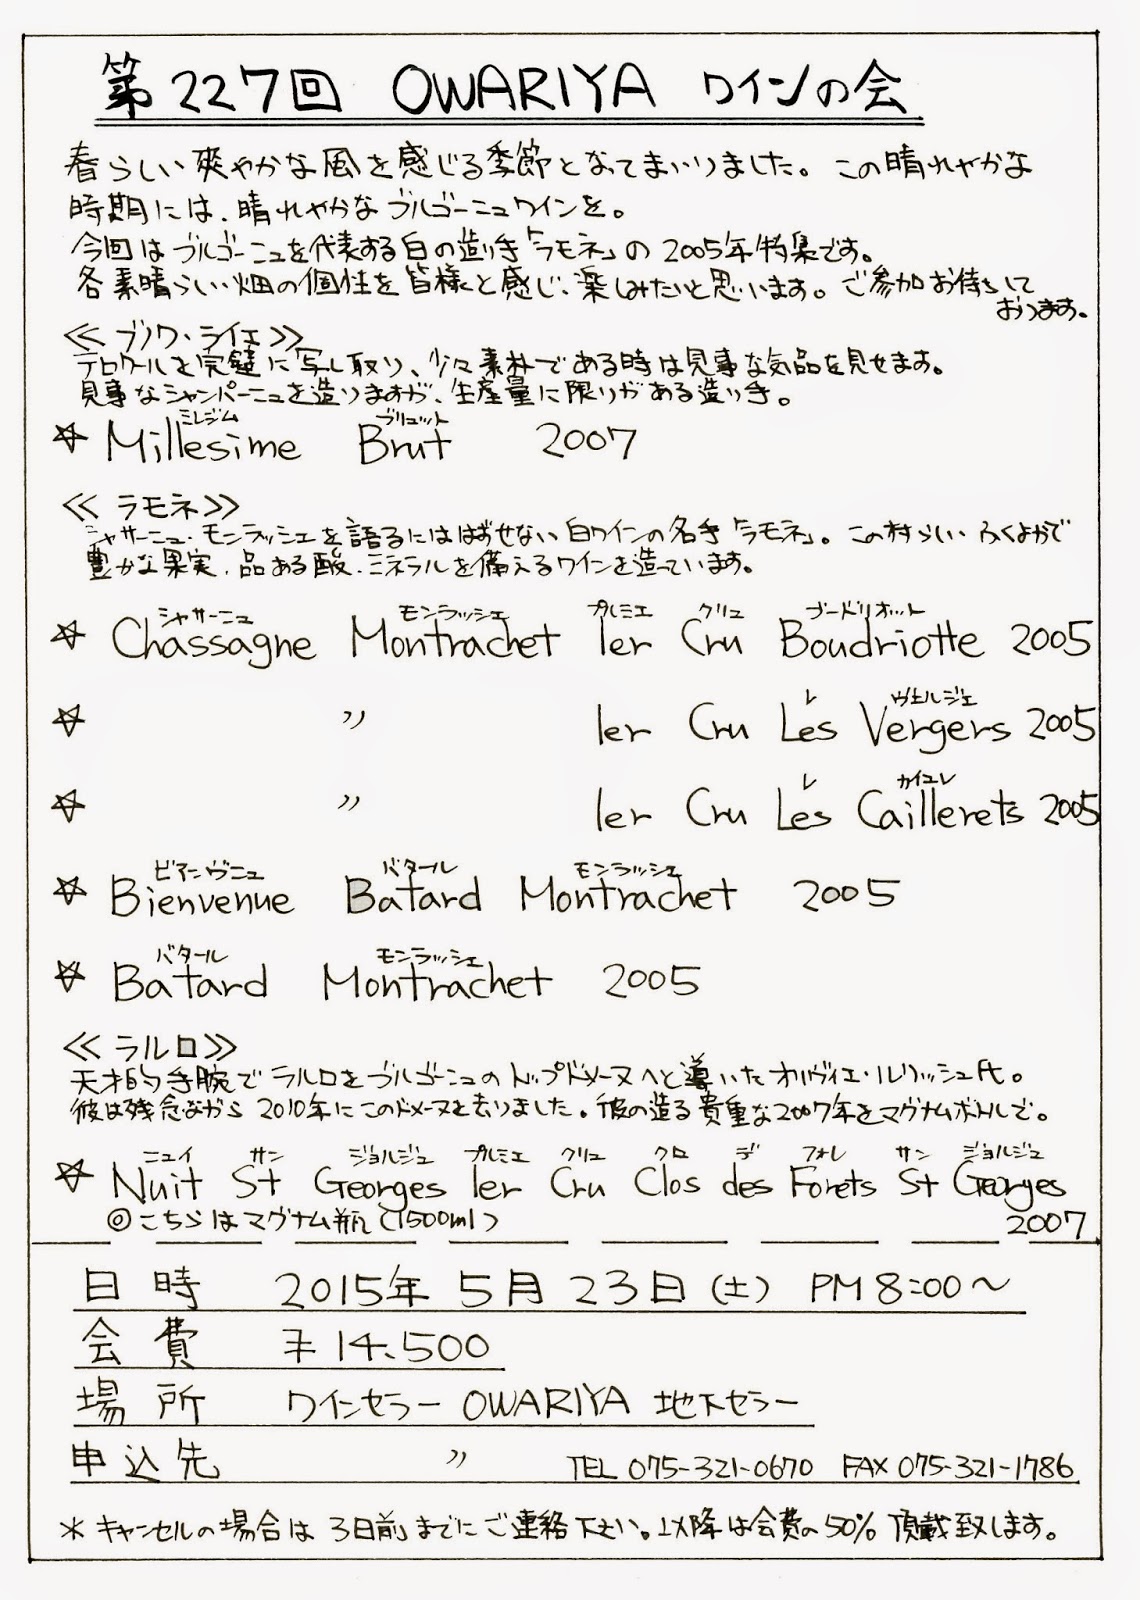 第227回 OWARIYA ワインの会
春らしい爽やかな風を感じる季節となってまいりました。この晴れやかな
時期には、晴れやかなブルゴーニュワインを。
今回はブルゴーニュを代表する白の造り手「ラモネ」の2005年特集です。
各素晴らしい畑の個性を皆様と感じ、楽しみたいと思います。ご参加お待ちして
おります。
≪ブノワ・ライエ≫
テロワールを完璧に写し取り、少々素朴である時は見事な気品を見せます。
見事なシャンパーニュを造りますが、生産量に限りがある造り手。
ミレジム ブリュット
☆ Millesime Brut 2007
≪ラモネ≫
シャサーニュ・モンラッシェを語るにははずせない白ワインの名手「ラモネ」。この村らしいふくよかで
豊かな果実、品ある酸、ミネラルを備えるワインを造っています。
シャサーニュ モンラッシェ プルミエ クリュ ブードリオット
☆ Chassagne Montrachet 1er Cru Boudriotte 2005
レ ヴェルジェ
☆ 〃 1er Cru Les Vergers 2005
レ カイユレ
☆ 〃 1er Cru Les Caillerets 2005
ビアンヴニュ バタール モンラッシェ
☆ Bienvenue Batard Montrachet 2005
バタール モンラッシェ
☆ Batard Montrachet 2005
≪ラルロ≫
天才的手腕でラルロをブルゴーニュのトップドメーヌへと導いたオリヴィエ・ルリッシュ氏。
彼は残念ながら2010年にこのドメーヌを去りました。彼の造る貴重な2007年をマグナムボトルで。
ニュイ サン ジョルジュ プルミエ クリュ クロ デ フォレ サン ジョルジュ
☆ Nuit St Georges 1er Cru Clos des Forets St Georges
◎こちらはマグナム瓶(1500ml) 2007
日時 2015年5月23日(土) PM8:00〜
会費 ¥14,500
場所 ワインセラー OWARIYA 地下セラー
申込先 〃 TEL 075-321-0670 FAX 075-321-1786
＊キャンセルの場合は3日前までにご連絡下さい。以降は会費の50%頂戴致します。